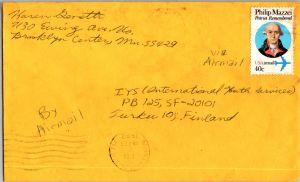 Karen Dorette
7130 Ewing Ave. No.
Brooklyn Center, Mn. 55429
Philip Mazzei
Patriot Remembered
USAirmail
40c
via
Airmail
By
Airmail
IYS (International Youth Services)
PB 125, SF-20101
Turku 10, Finland